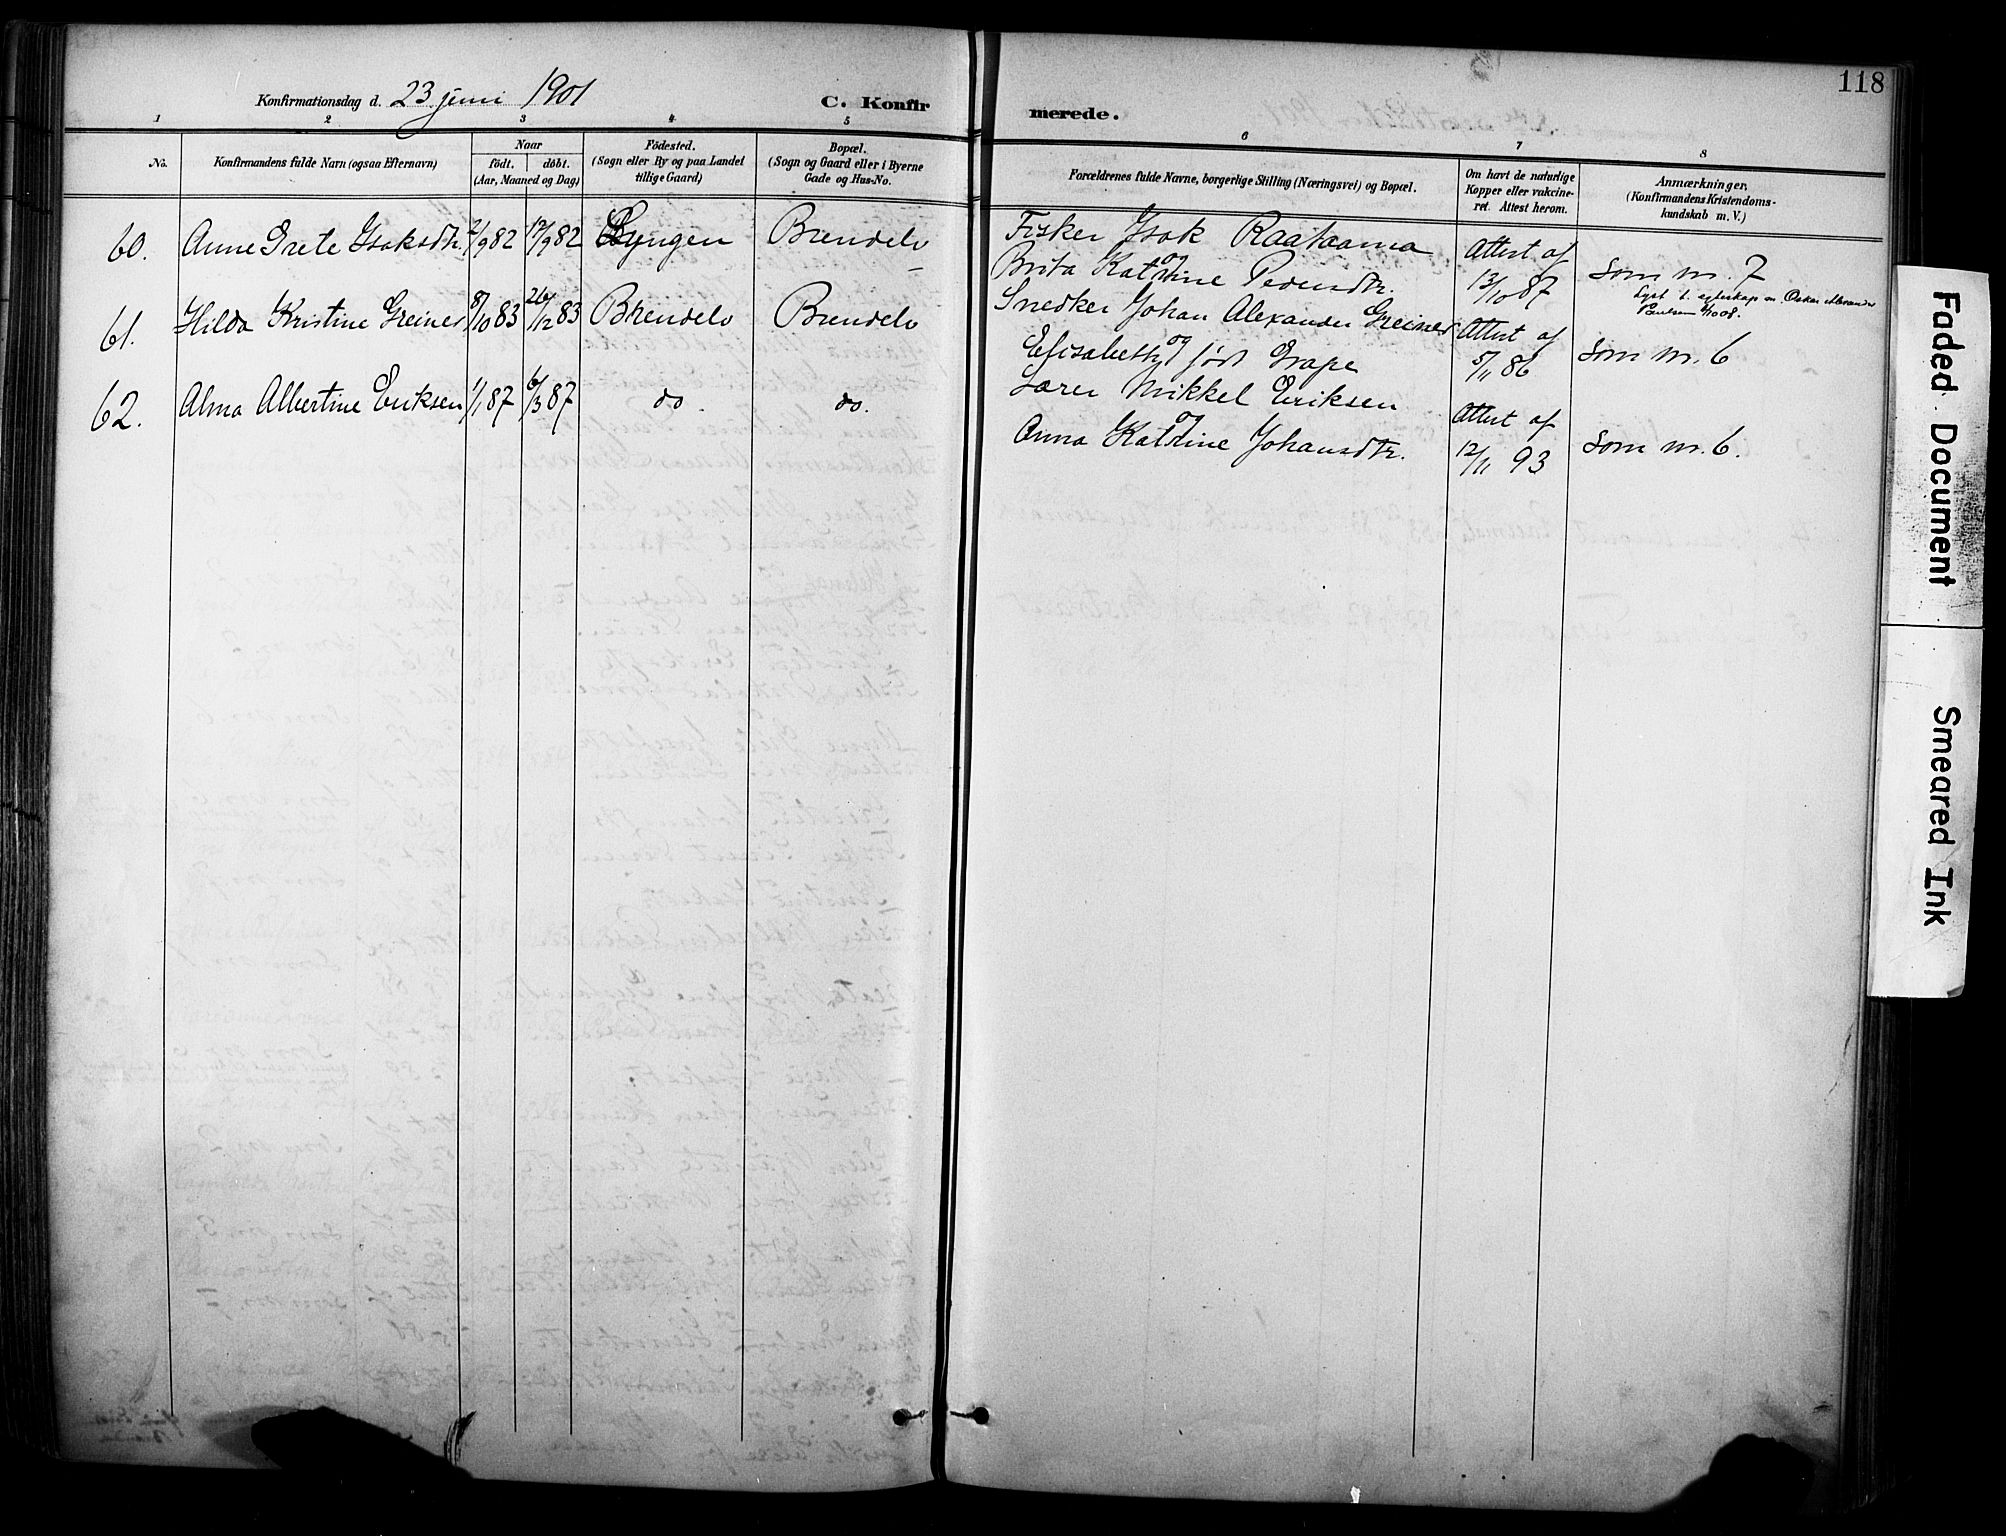 118
Konfirmationsdag d. 23 juni 1901
C. Konfir
merede.
1 2 3 4 5 6 7 8
No.
Konfirmandens fulde Navn (ogsaa Efternavn)
Naar
födt. döbt.
(Aar, Maaned og Dag)
Födested.
(Sogn eller By og paa Landet
tillige Gaard)
Bopæl.
(Sogn og Gaard eller i Byerne
Gade og Hus-No.
Forældrenes fulde Navne, borgerlige Stilling (Næringsvei) og Bopæl.
Om havt de naturlige
Kopper eller vakcine-
ret. Attest herom.
Anmærkninger.
(Konfirmandens Kristendoms-
kundskab m. V.)
60. Anne Grete Isaksdtr. 2/9 82 17/9 82 Lyngen Brendelv
Fisker Isak Raataama
og
Brita Katrine Pedersdtr.
Attest af
13/10 87
som nr. 7
61. Hilda Kristine Greiner 8/10 83 26/12 83 Brendelv Brendelv
Snedker Johan Alexander Greiner
og
Elisabeth født Grape
Attest af
5/11 86
Lyst t. egteskap m. Oskar Alexander
Paulsen
som nr. 6
62. Alma Albertine Eriksen 1/1 87 6/3 87 do. do.
Lærer Mikkel Eriksen
og
Anna Katrine Johansdtr.
Attest af
12/11 93
som nr. 6.
Faded Document
Smeared Ink